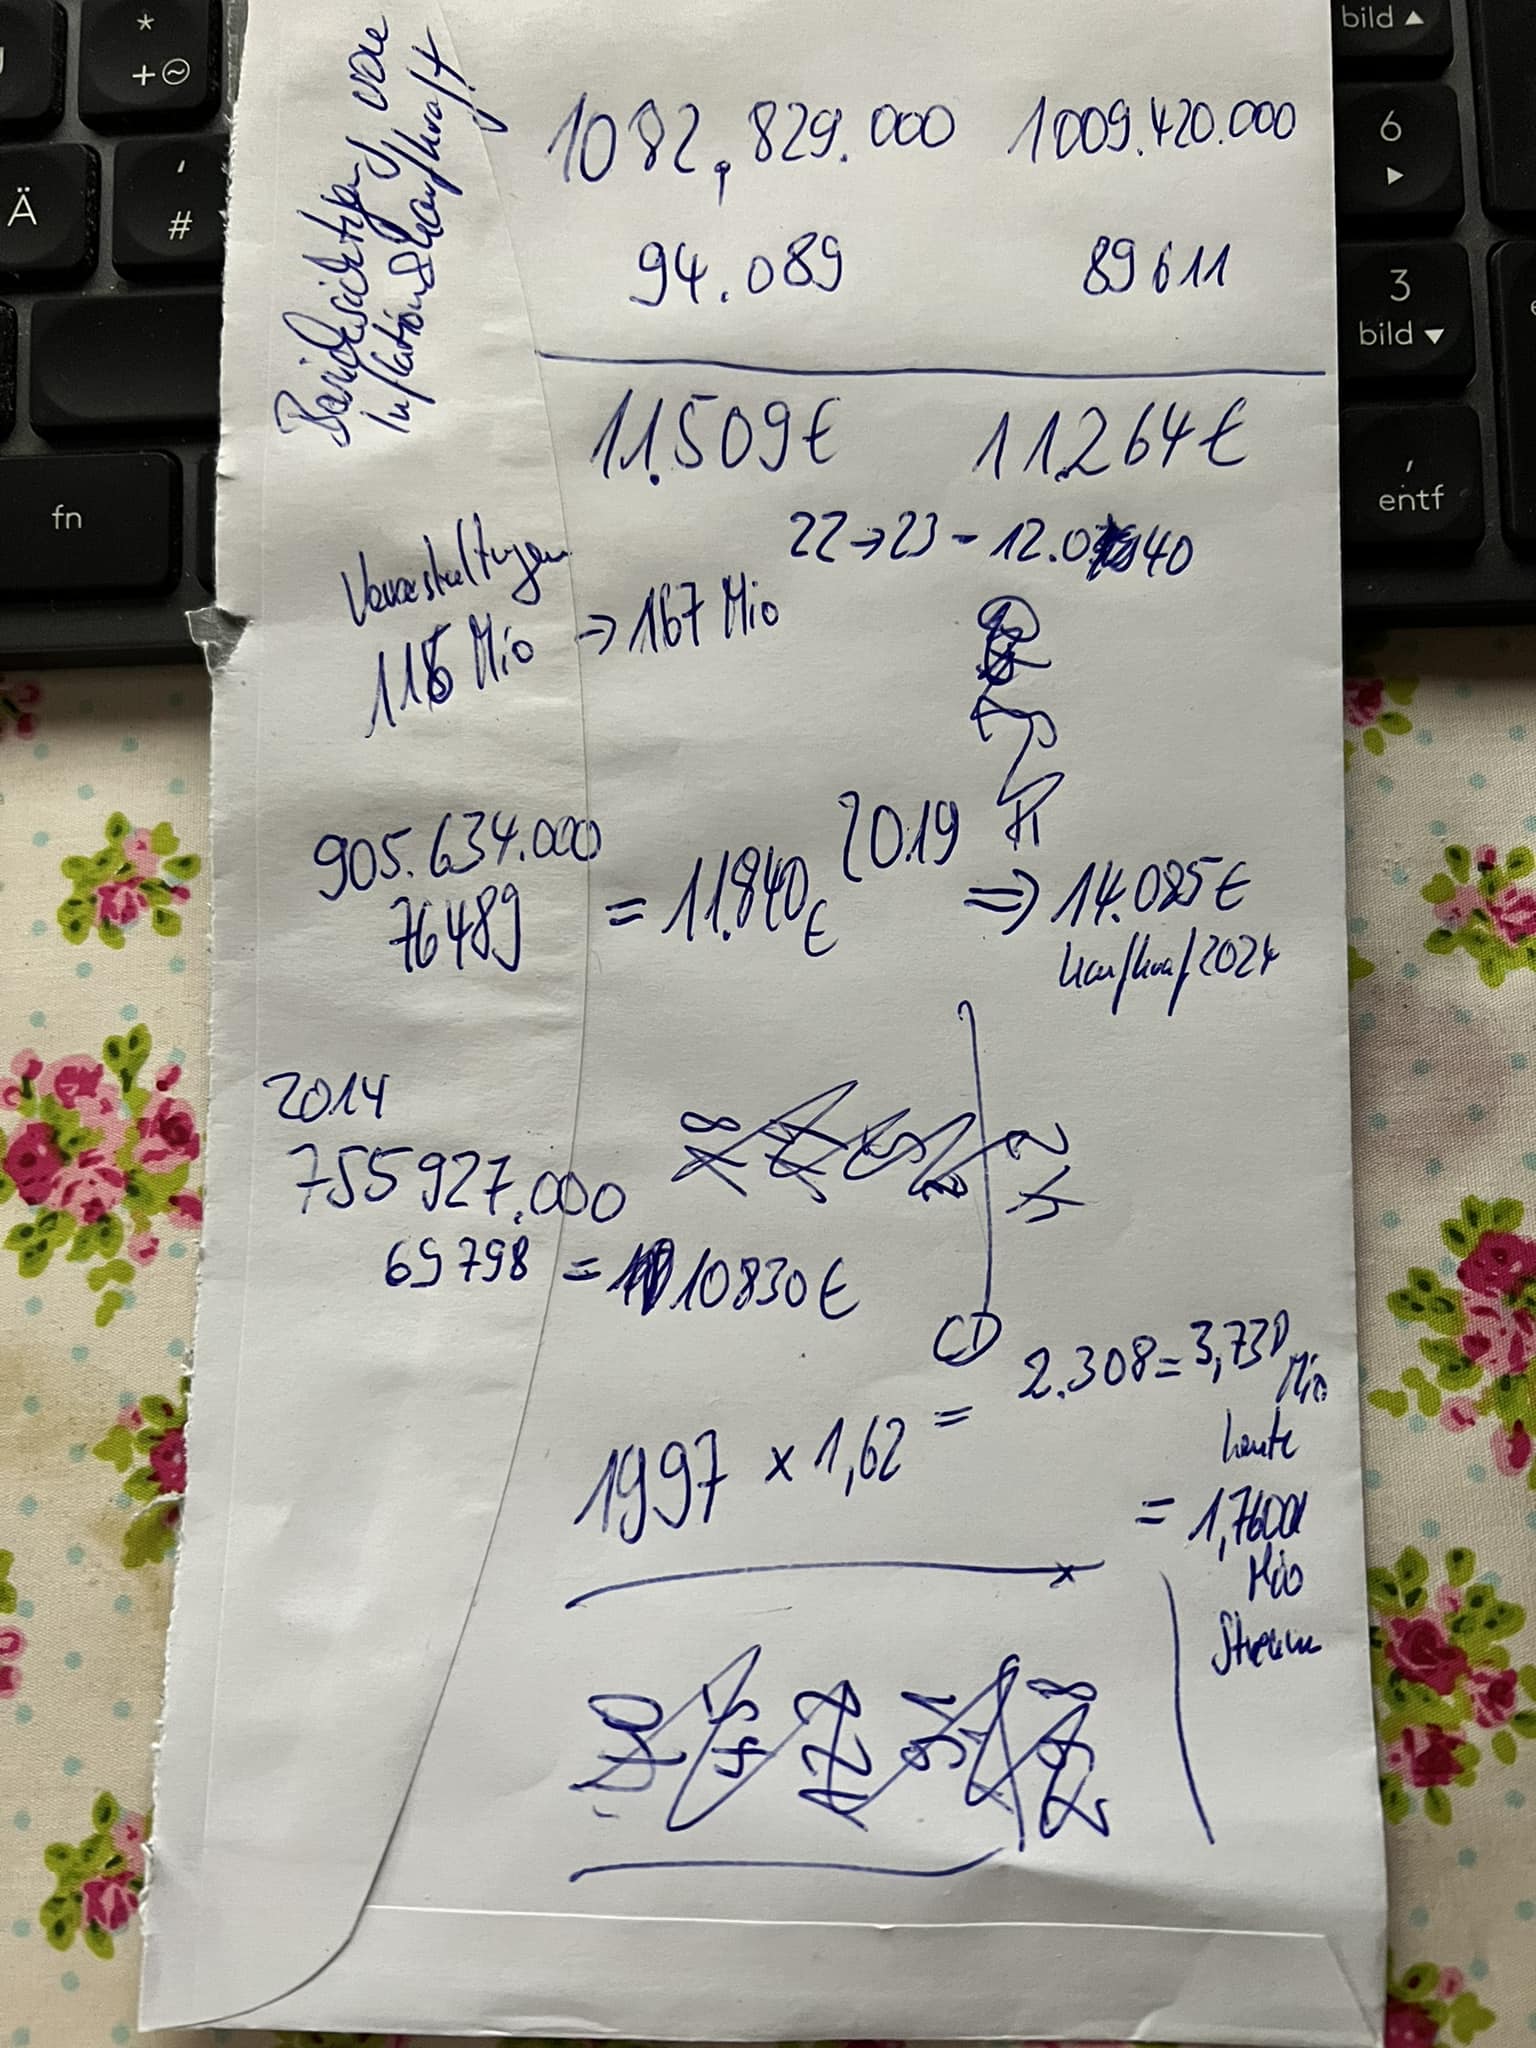 Berücksichtigung von
Inflation & Kaufkraft
1082.829.000 1009.420.000
94.089 89611
11.509€ 11.264€
22→23 - 12.040
Veranstaltungen
115 Mio → 167 Mio
905.634.000
76489 = 11.840€ 2019 ⇒ 14.085€
Kaufkraf 2024
2014
755927.000
69798 = 10830€
CD
1997 x 1,62 = 2.308 = 3,730
Mio
heute
= 1,7600
Mio
Streams
*
+ ~
Ä
'
#
fn
bild ▲
6
▶
3
bild ▼
,
entf